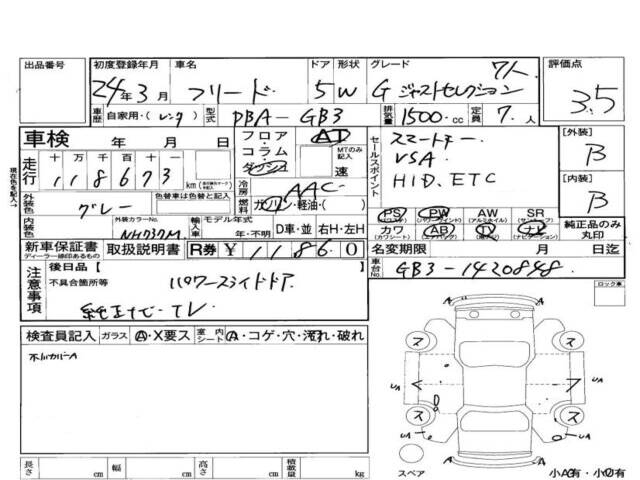 出品番号 初度登録年月 車名 ドア 形状 グレード 7人 評価点
24年3月 フリード 5W G ジャストセレクション 3.5
車歴 自家用・(レンタ) 型式 DBA-GB3 排気量 1500.cc 定員 7.人
車検 年 月 日 フロア・コラム・ AT セールスポイント スマートキー. [外装] B
走行 十 万 千 百 十 一 MTのみ記入 VSA
1 1 8 6 7 3 km 速 HID. ETC [内装] B
冷房 AAC
外装色 グレー 色替車は色替と記入 燃料 ガソリン・軽油・( ) PS PW AW SR 純正品のみ丸印
(パワーステ) (パワーウィンド) (アルミホイル) (サンルーフ)
内装色 外装カラーNo. NH737M 輸入車 モデル年式 年・不明 D車・並 右H・左H カワ AB TV ナビ
(カワシート) (エアバック)
新車保証書 取扱説明書 R券 ¥11860 名変期限 月 日迄
ディーラー捺印あるもの
車台No. GB3-1420848
注意事項 後日品【 】
不具合箇所等 1パワースライドドア.
純正ナビ・TV
ロック車
検査員記入 ガラス A・X要ス 室内シート A・コゲ・穴・汚れ・破れ
ス ス
UA UA
ス ス
UA
長さ cm 幅 cm 高さ cm 積載量 kg
スペア 小AG有・小凹有
現在色を記入→